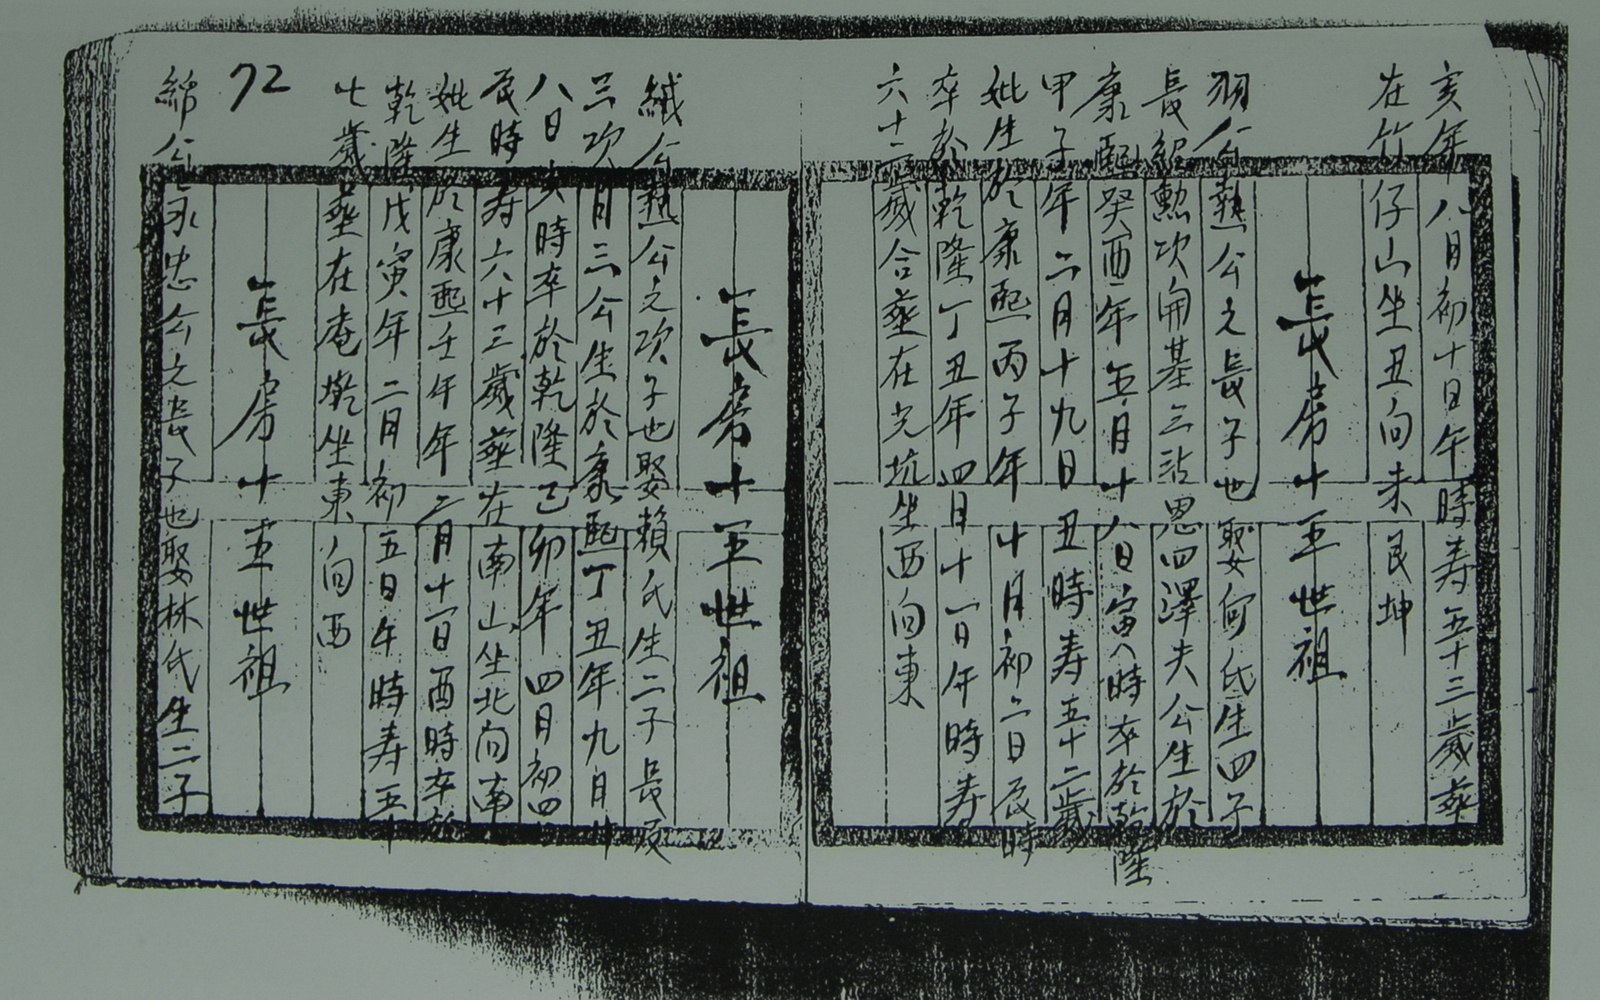 亥年八月初十日午時寿五十三歲葬
在竹仔山坐丑向未艮坤
長房十五世祖
翔公熱公之長子也娶何氏生四子
長紹勲次開基三思四澤夫公生於
康熙癸酉年五月十八日寅時卒於乾隆
甲子年二月十九日丑時寿五十二歲
妣生於康熙丙子年十月初六日辰時
卒於乾隆丁丑年四月十一日午時寿
六十二歲合葬在光坑坐西向東
長房十五世祖
緘公熱公之次子也娶賴氏生二子長辰
三次月三公生於康熙丁丑年九月廿
八日亥時卒於乾隆己卯年四月初四
辰時寿六十三歲葬在南山坐北向南
妣生於康熙壬午年二月十一日酉時卒於
乾隆戊寅年二月初五日午時寿五十
七歲葬在庵墘坐東向西
長房十五世祖
72
綿公永忠公之長子也娶林氏生二子